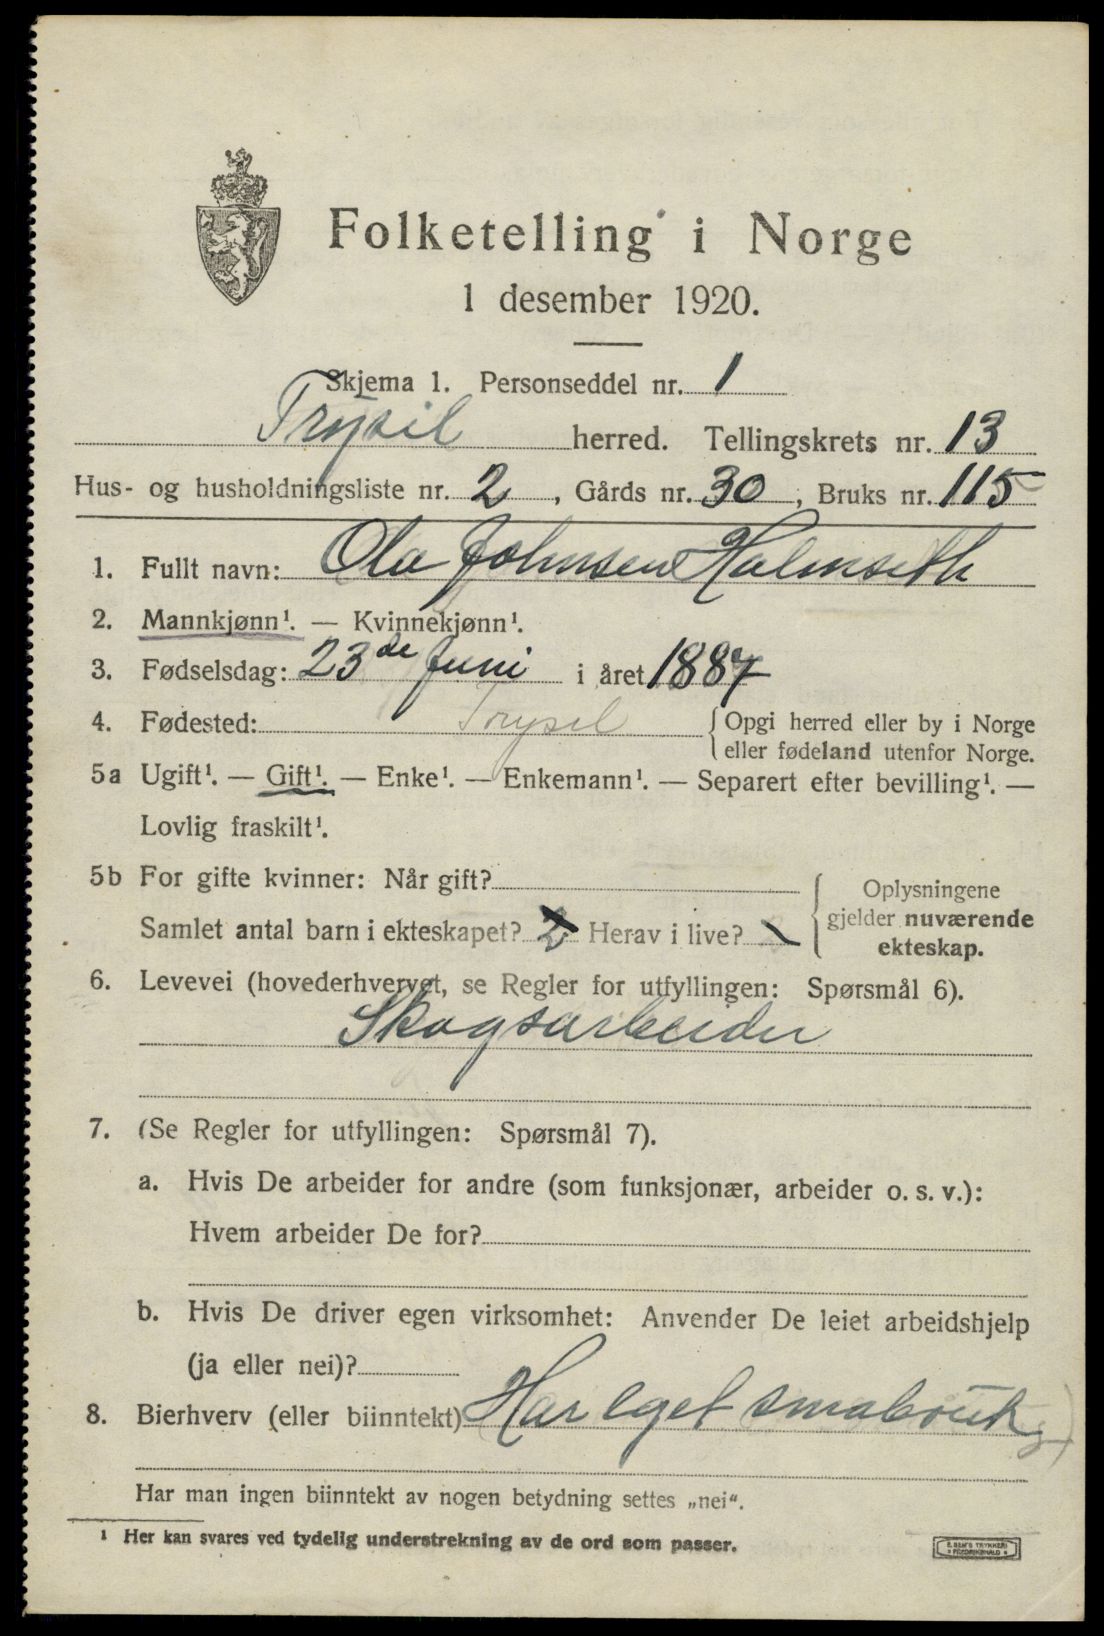 Folketelling i Norge
1 desember 1920.
Skjema 1. Personseddel nr. 1
Trysil herred. Tellingskrets nr. 13
Hus- og husholdningsliste nr. 2, Gårds nr. 30, Bruks nr. 115
1. Fullt navn: Ola Johnsen Holmseth
2. Mannkjønn¹. — Kvinnekjønn¹.
3. Fødselsdag: 23de Juni i året 1887
4. Fødested: Trysil { Opgi herred eller by i Norge
eller fødeland utenfor Norge.
5a Ugift¹. — Gift¹. — Enke¹. — Enkemann¹. — Separert efter bevilling¹. —
Lovlig fraskilt¹.
5b For gifte kvinner: Når gift? { Oplysningene
gjelder nuværende
ekteskap.
Samlet antal barn i ekteskapet? 2 Herav i live?
6. Levevei (hovederhvervet, se Regler for utfyllingen: Spørsmål 6).
Skogsarbeider
7. (Se Regler for utfyllingen: Spørsmål 7).
a. Hvis De arbeider for andre (som funksjonær, arbeider o. s. v.):
Hvem arbeider De for?
b. Hvis De driver egen virksomhet: Anvender De leiet arbeidshjelp
(ja eller nei)?
8. Bierhverv (eller biinntekt) Har eget smabruk
Har man ingen biinntekt av nogen betydning settes „nei“.
¹ Her kan svares ved tydelig understrekning av de ord som passer.
E. SEM'S TRYKKERI
FREDRIKSHALD